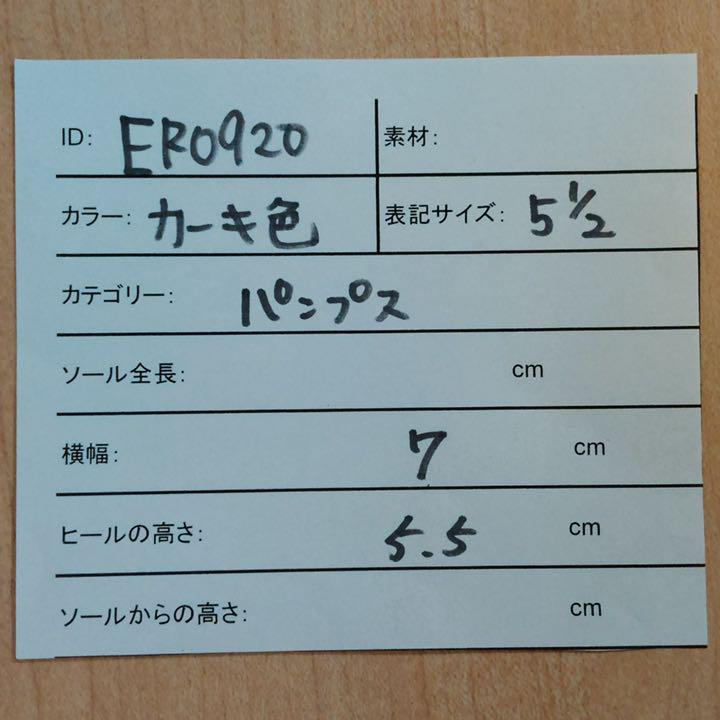 ID: ER0920 素材:
カラー: カーキ色 表記サイズ: 5 1/2
カテゴリー: パンプス
ソール全長: cm
横幅: 7 cm
ヒールの高さ: 5.5 cm
ソールからの高さ: cm